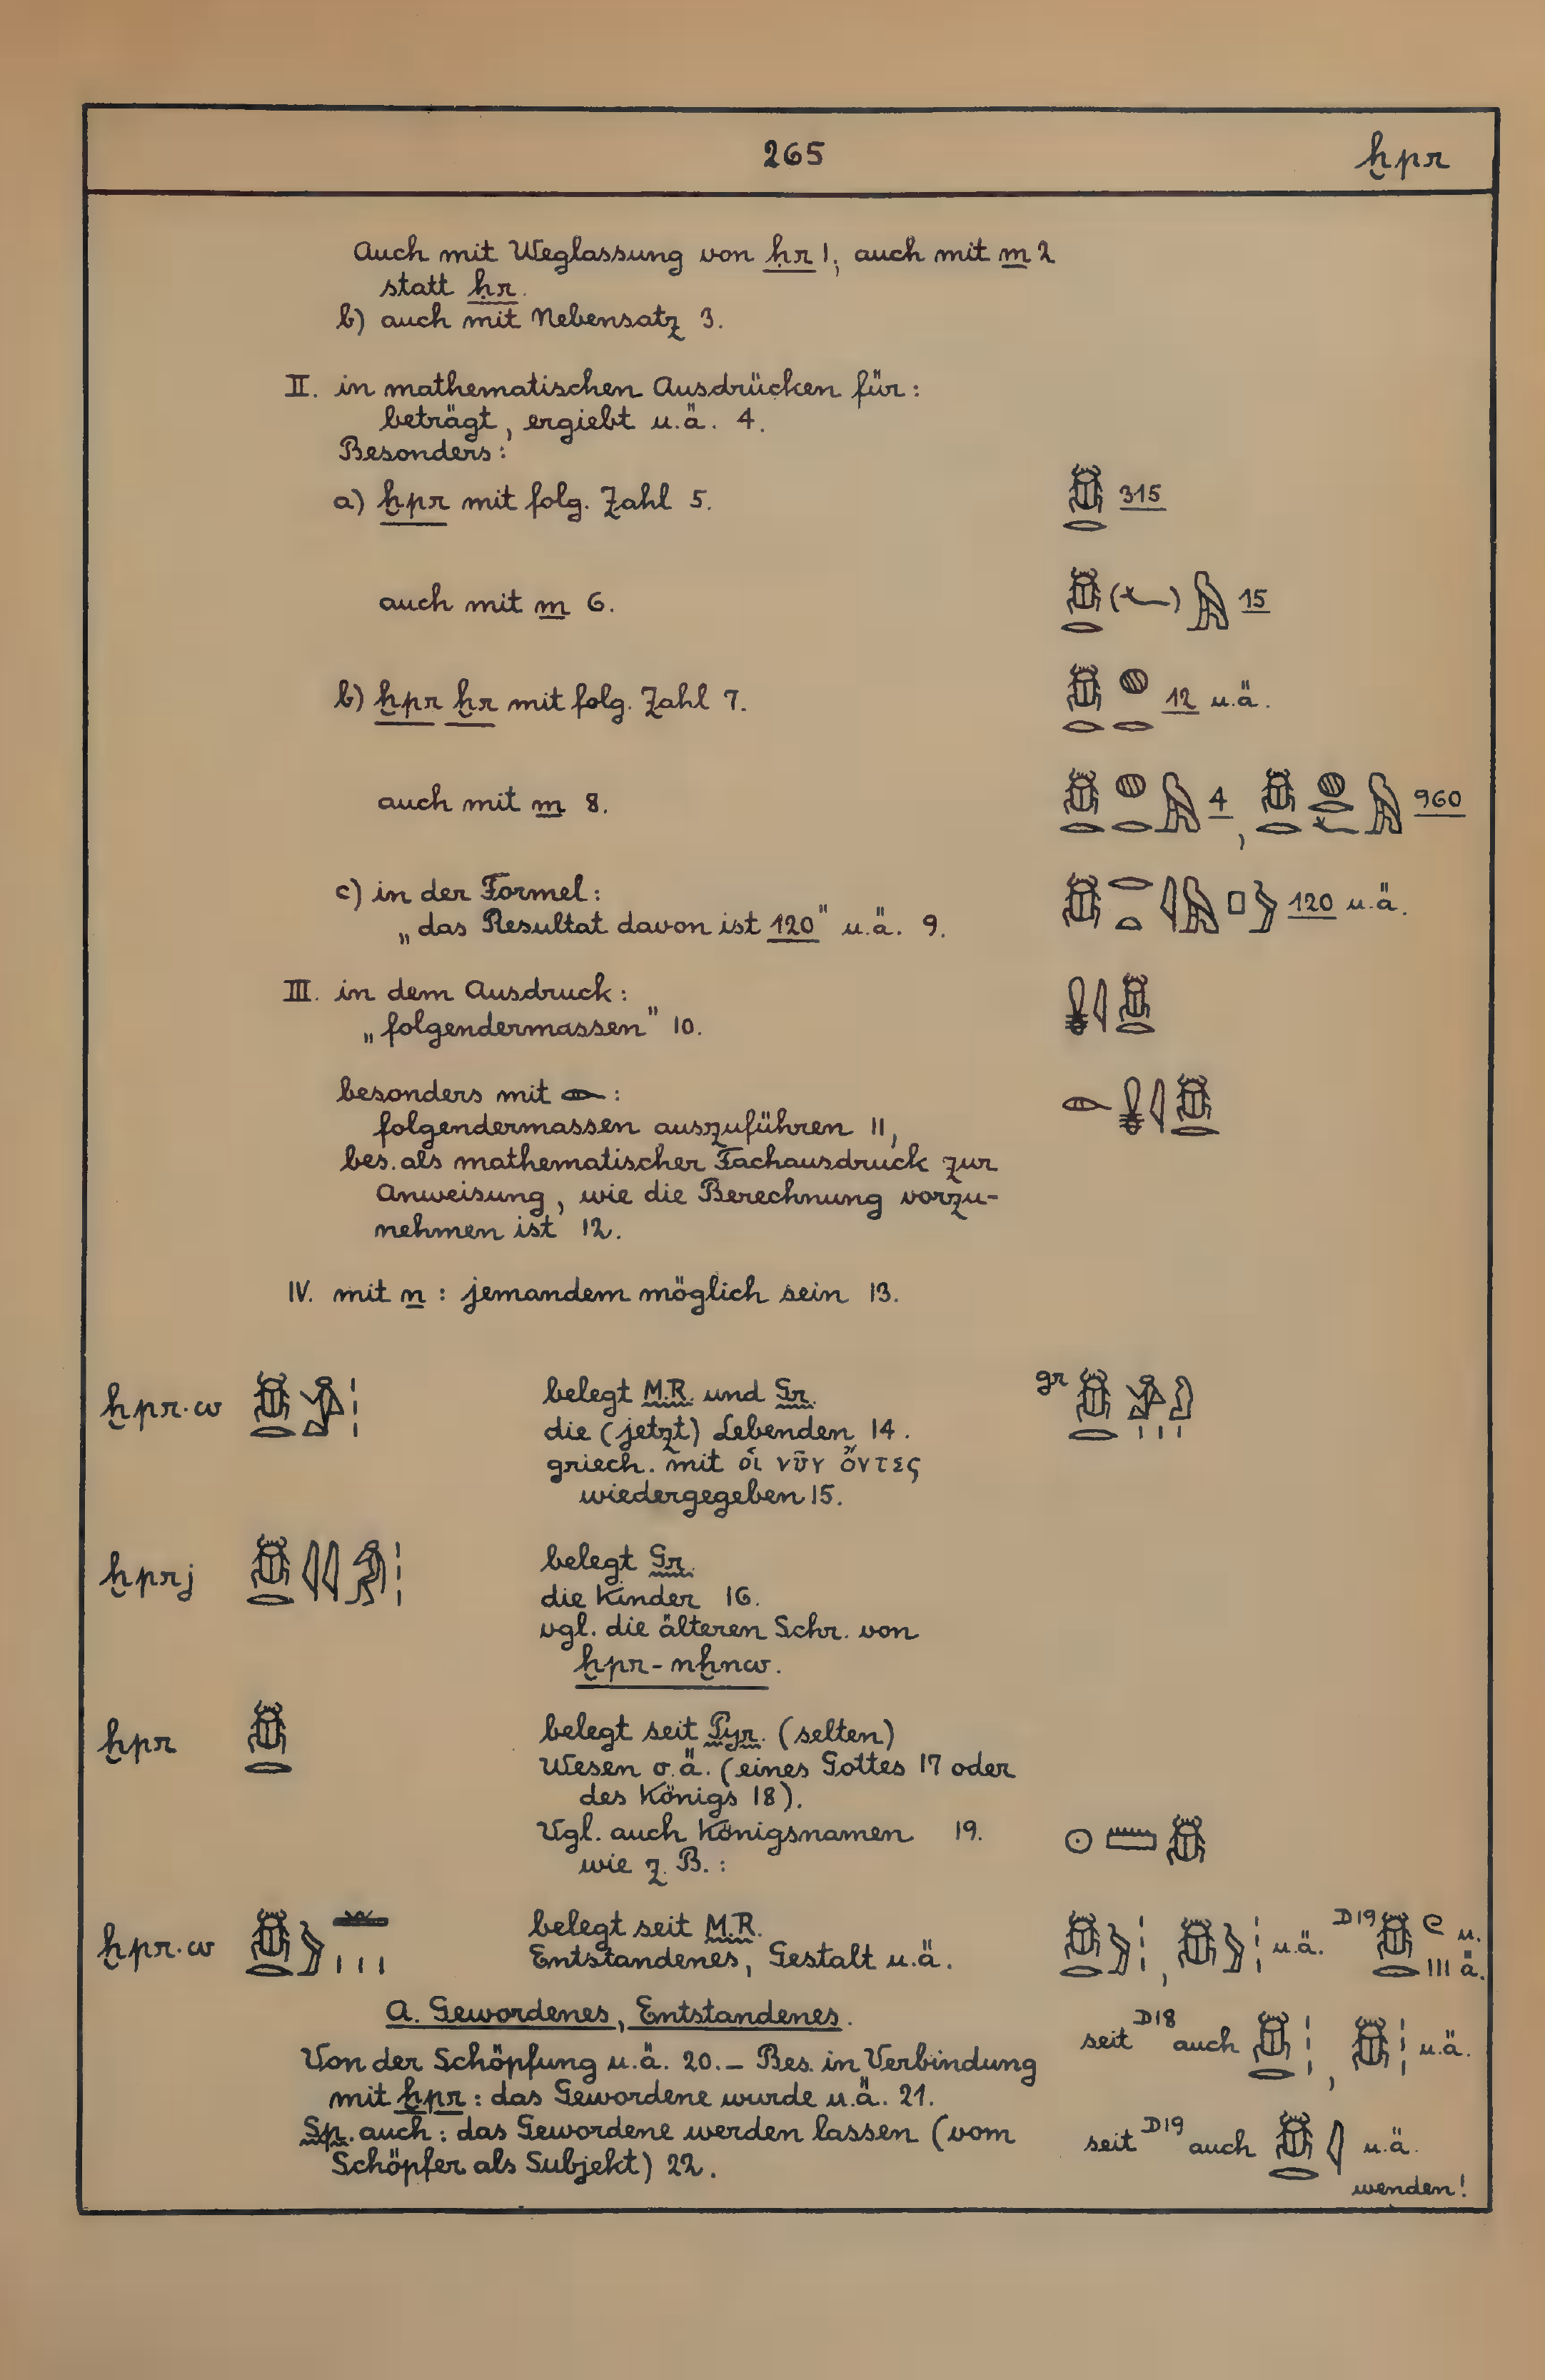 265 ḫpr
Auch mit Weglassung von ḥr 1, auch mit m 2
statt ḥr.
b) auch mit Nebensatz 3.
II. in mathematischen Ausdrücken für:
beträgt, ergiebt u.ä. 4.
Besonders:
a) ḫpr mit folg. Zahl 5. 𓆣𓂋 315
auch mit m 6. 𓆣𓂋(𓂝)𓅓 15
b) ḫpr ḫr mit folg. Zahl 7. 𓆣𓂋𓐍𓂋 12 u.ä.
auch mit m 8. 𓆣𓂋𓐍𓂋𓅓 4, 𓆣𓂋𓐍𓂋 𓅓 960
c) in der Formel:
„das Resultat davon ist 120" u.ä. 9. 𓆣𓂋𓏏𓇋𓅓𓊪𓅱 120 u.ä.
III. in dem Ausdruck:
„folgendermassen" 10. 𓄟𓇋𓆣𓂋
besonders mit 𓁹:
folgendermassen auszuführen 11,
bes. als mathematischer Fachausdruck zur
Anweisung, wie die Berechnung vorzu-
nehmen ist 12.
IV. mit n : jemandem möglich sein 13.
ḫpr·w 𓆣𓂋𓀀𓏥 belegt M.R. und Gr. gr 𓆣𓂋𓀀𓁐𓏥
die (jetzt) Lebenden 14.
griech. mit οἱ νῦν ὄντες
wiedergegeben 15.
ḫprj 𓆣𓂋𓇋𓇋𓀔𓏥 belegt Gr.
die Kinder 16.
vgl. die älteren Schr. von
ḫpr-nḫnw.
ḫpr 𓆣𓂋 belegt seit Pyr. (selten)
Wesen o.ä. (eines Gottes 17 oder
des Königs 18).
Vgl. auch Königsnamen 19. 𓇳𓏠𓆣
wie z. B. :
ḫpr·w 𓆣𓂋𓅱𓏥 belegt seit M.R. 𓆣𓂋𓅱𓏥, 𓆣𓅱𓏥 u.ä. D19 𓆣𓂋𓏲𓏥 u.ä.
Entstandenes, Gestalt u.ä.
A. Gewordenes, Entstandenes. seit D18 auch 𓆣𓂋𓏥, 𓆣𓏥 u.ä.
Von der Schöpfung u.ä. 20. – Bes. in Verbindung
mit ḫpr : das Gewordene wurde u.ä. 21.
Sp. auch : das Gewordene werden lassen (vom seit D19 auch 𓆣𓂋𓇋 u.ä.
Schöpfer als Subjekt) 22.
wenden!